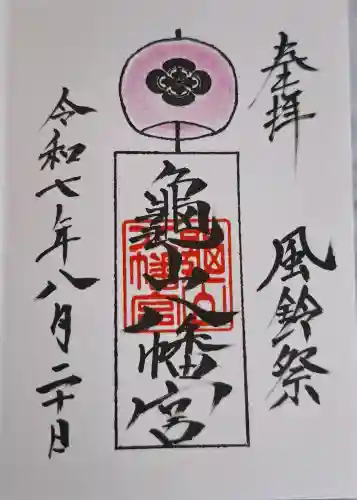 奉拝
風鈴祭
亀山八幡宮
令和七年八月二十日